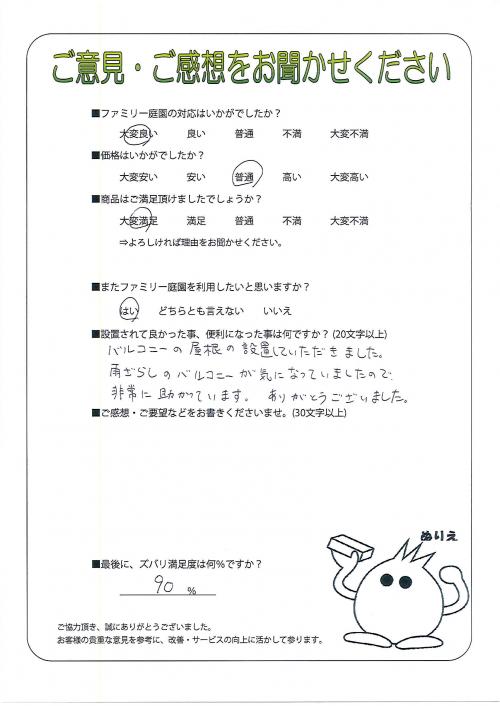 ご意見・ご感想をお聞かせください
■ファミリー庭園の対応はいかがでしたか？
大変良い 良い 普通 不満 大変不満
■価格はいかがでしたか？
大変安い 安い 普通 高い 大変高い
■商品はご満足頂けましたでしょうか？
大変満足 満足 普通 不満 大変不満
⇒よろしければ理由をお聞かせください。
■またファミリー庭園を利用したいと思いますか？
はい どちらとも言えない いいえ
■設置されて良かった事、便利になった事は何ですか？(20文字以上)
バルコニーの屋根の設置していただきました。
雨ざらしのバルコニーが気になっていましたので、
非常に助かっています。 ありがとうございました。
■ご感想・ご要望などをお書きくださいませ。(30文字以上)
ぬりえ
■最後に、ズバリ満足度は何％ですか？
90 ％
ご協力頂き、誠にありがとうございました。
お客様の貴重な意見を参考に、改善・サービスの向上に活かして参ります。